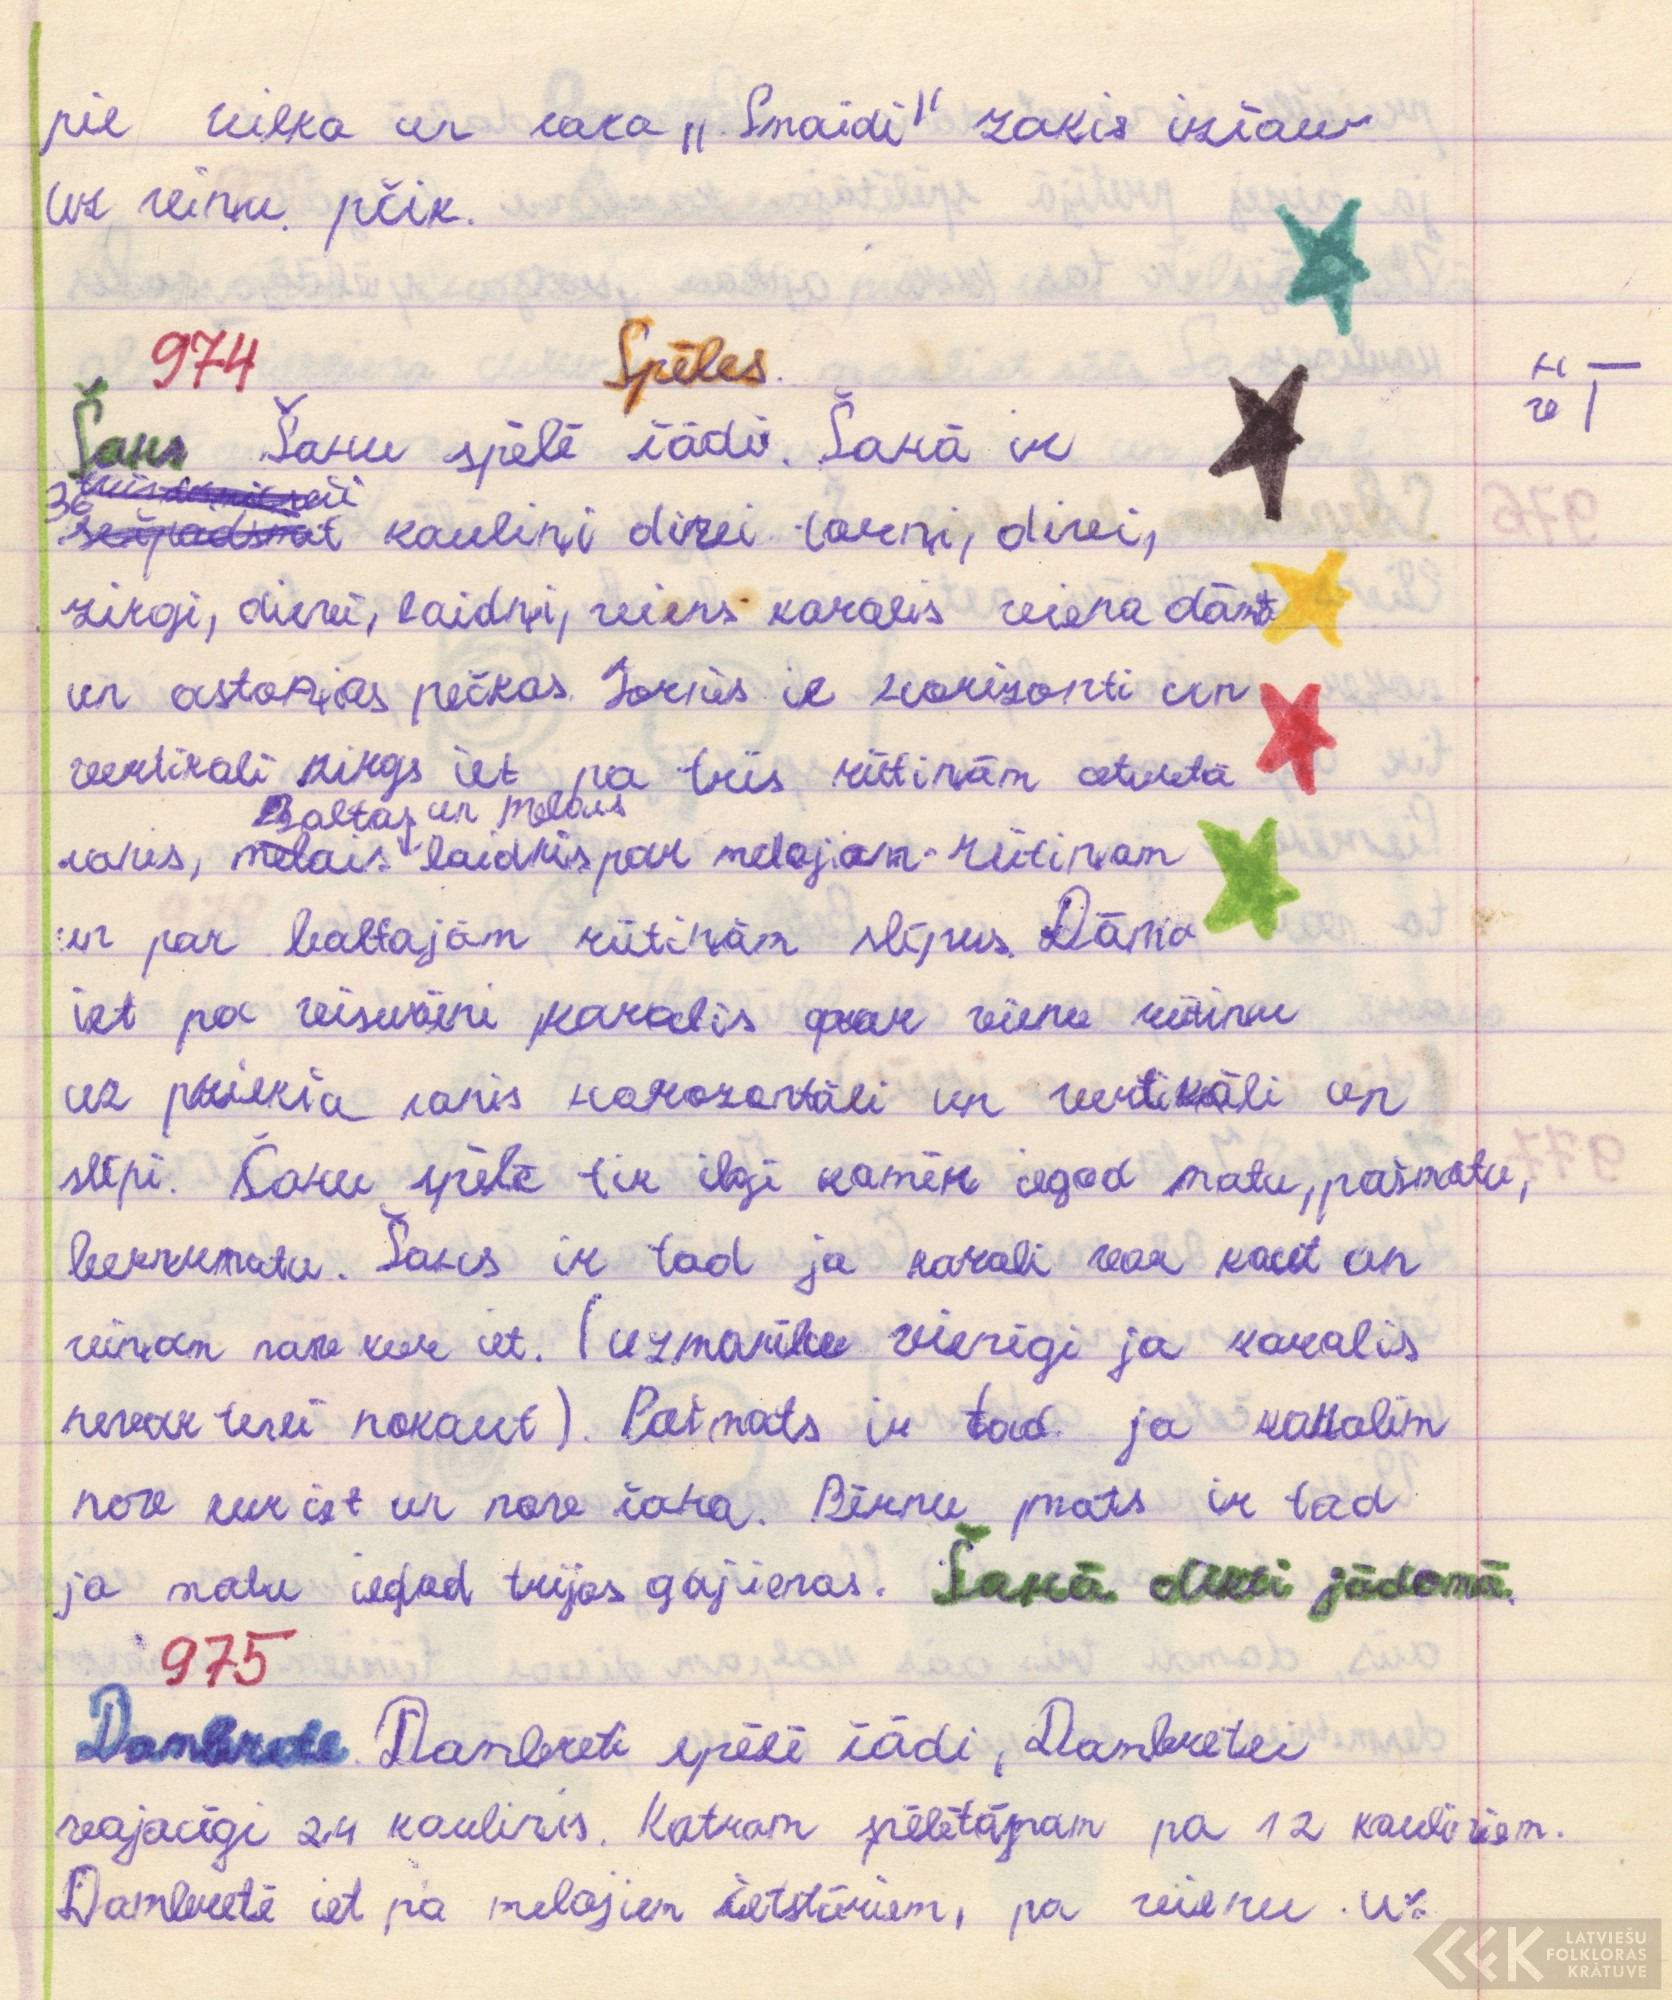 pie vilka un saka „Smaidi" zaķis iztaur
uz viņu pčik.
974 Spēles.
Šahs Šahu spēlē šādi. Šahā ir
36 kauliņi divi torņi, divi,
zirgi, divi, laidņi, viens karalis viena dāma
un astoņias pečkas. Tornis ie horizonti un
vertikali zirgs iet pa trīs rūtiņām ceturtā
Baltas un Melnais
sānis, laidnis par melajam rūtiņam
un par baltajām rūtiņām slīpus. Dāma
iet pa visuviņi karalis par vienu rūtiņu
uz priekša sānis horozontāli un vertikāli un
slīpi. Šahu spēlē tik ilgi kamēr iegad matu, pašmatu,
bernumatu. Šahs ir tad ja karali var kaut un
viņam nave kur iet. (uzmanību vienīgi ja karalis
nevar tevi nokaut). Patmats ir tad ja karalim
nove kur iet un nove šaha. Bērnu mats ir tad
ja matu iegad trijos gājienos. Šahā dikti jādomā.
975
Dambrete. Dambreti spēlē šādi, Dambretei
vajacīgi 24 kauliņis. Katram spēlētājam pa 12 kauliņiem.
Dambretē iet pa melajiem četstūriem, pa vienu uz
H —
ve |
LATVIEŠU
FOLKLORAS
KRĀTUVE